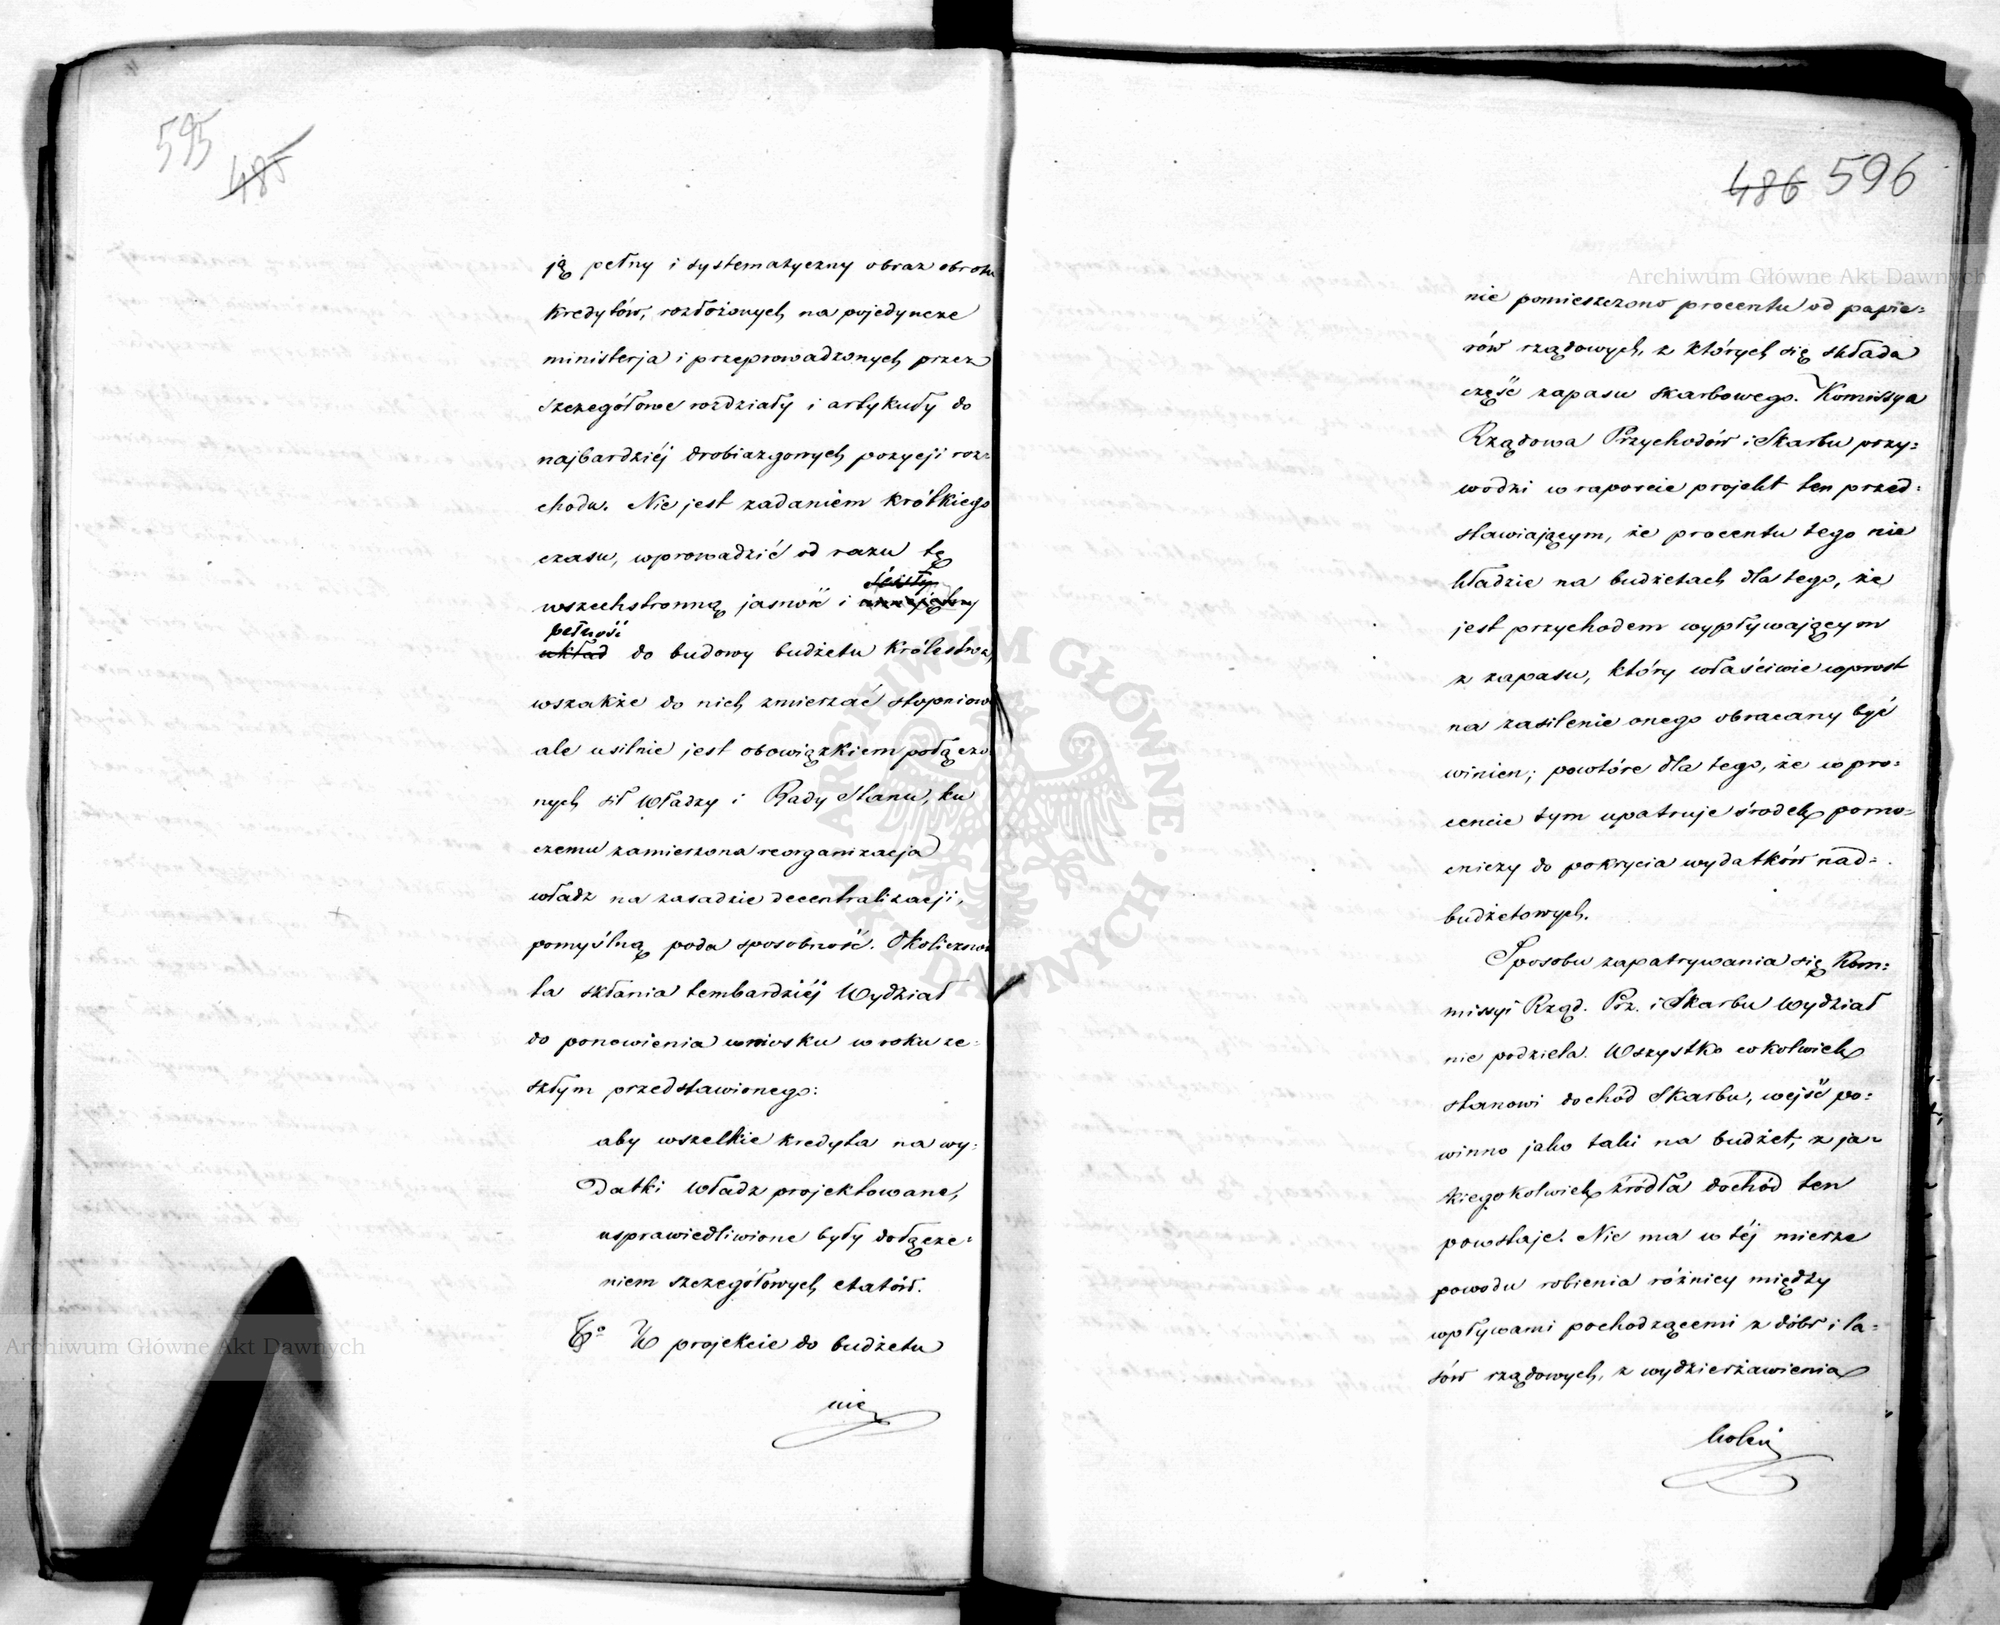 595
485
ją pełny i systematyczny obraz obrotu
kredytów, rozłożonych na pojedyncze
ministerja i przeprowadzonych przez
szczegółowe rozdziały i artykuły do
najbardziéj drobiazgowych pozycji roz=
chodu. Nie jest zadaniem krótkiego
czasu, wprowadzić od razu tę
ścisły
wszechstronną jasność i
pełność
układ do budowy budżetu Królestwa,
wszakże do nich zmierzać stopniowo
ale usilnie jest obowiązkiem połączo=
nych sił Władzy i Rady Stanu, ku
czemu zamierzona reorganizacja
władz na zasadzie decentralizacji,
pomyślną poda sposobność. Okoliczność
ta skłania tembardziéj Wydział
do ponowienia wniosku w roku ze=
szłym przedstawionego:
aby wszelkie kredyta na wy=
datki władz projektowane,
usprawiedliwione były dołącze=
niem szczegółowych etatów.
W projekcie do budżetu
nie
486 596
nie pomieszczono procentu od papie=
rów rządowych, z których się składa
część zapasu skarbowego. Komissya
Rządowa Przychodów i Skarbu przy=
wodzi w raporcie projekt ten przed=
stawiającym, że procentu tego nie
kładzie na budżetach dla tego, że
jest przychodem wypływającym
z zapasu, który właściwie wprost
na zasilenie onego obracany być
winien; powtóre dla tego, że w pro=
cencie tym upatruje środek pomo=
cniczy do pokrycia wydatków nad=
budżetowych.
Sposobu zapatrywania się Kom=
missyi Rząd. Prz. i Skarbu Wydział
nie podziela. Wszystko cokolwiek
stanowi dochód Skarbu, wejść po=
winno jako taki na budżet, z ja=
kiegokolwiek źródła dochód ten
powstaje. Nie ma w téj mierze
powodu robienia różnicy między
wpływami pochodzącemi z dóbr i la=
sów rządowych, z wydzierżawienia
kolei
Archiwum Główne Akt Dawnych
Archiwum Główne Akt Dawnych
ARCHIWUM GŁÓWNE AKT DAWNYCH